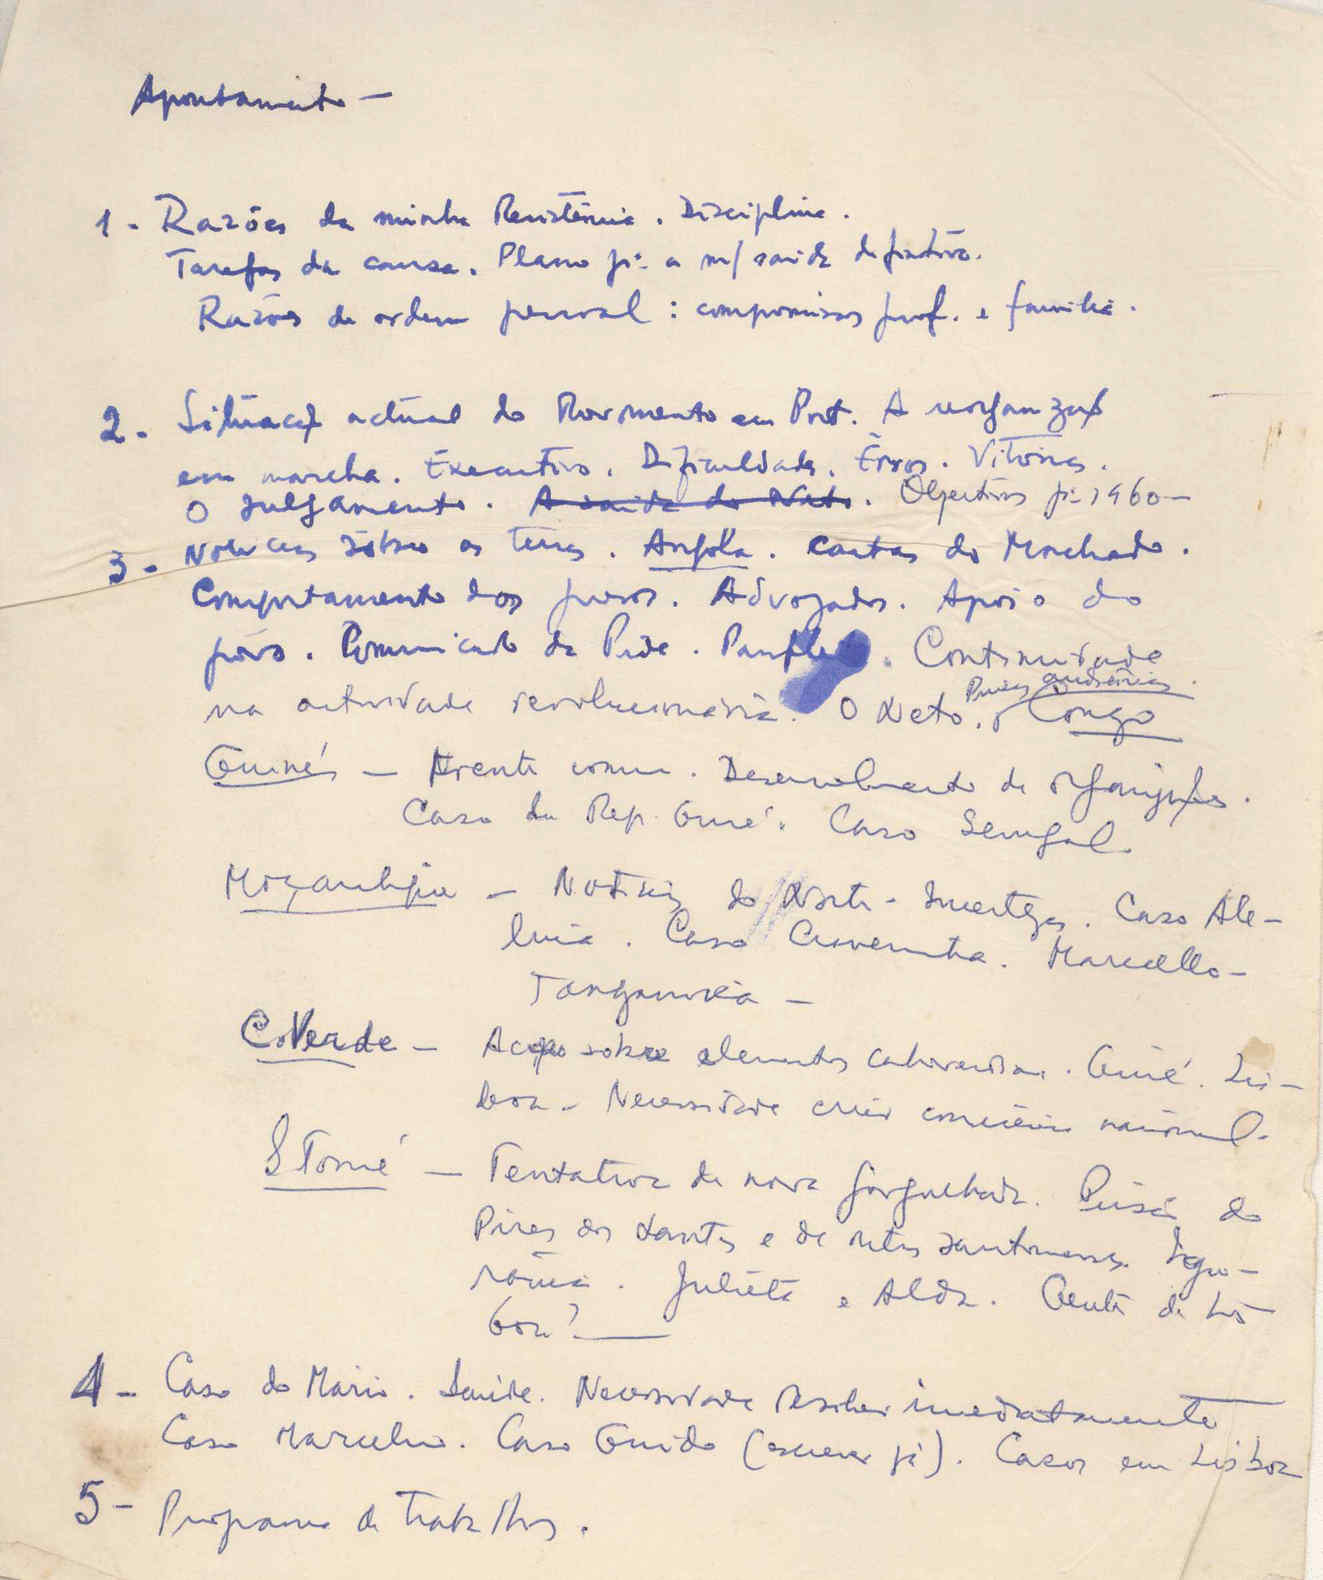 Apontamento —
1 - Razões da minha Resistência. Disciplina.
Tarefas da causa. Plano pª a m/ saída definitiva.
Razões de ordem pessoal: compromissos prof. e família.
2 - Situaçª actual do Movimento em Port. A reorganizaçª
em marcha. Executivo. Dificuldades. Êrros. Vitórias.
O Julgamento. A saída do Neto. Objectivos pª 1960 —
3 - Notícias sôbre as terras. Angola. Cartas do Machado.
Comportamento dos presos. Advogados. Apoio do
povo. Comunicado da Pide. Continuidade
Prisões
na actividade revolucionária. O Neto. o Congo
Guiné — Frente comum. Desenvolvimento da
Caso da Rep. Guiné. Caso Senegal.
Moçambique — Notícias do Norte - Incertezas. Caso Ale-
luia. Caso Craveirinha. Marcello -
Tanganyica —
C. Verde — Acção sobre elementos caboverdian. Guiné. Lis-
boa - Necessidade criar consciência nacional.
S Tomé — Tentativa de nova gorgulhada. Prisão do
Pires dos Santos e de outros santomenses. Segu-
rança. Julieta e Alda. Gente de Lis
boa? —
4 - Caso do Mário. Saúde. Necessidade resolver imediatamente
Caso Marcelino. Caso Guido (escrever já). Casos em Lisboa
5 - Programa de Trabalhos.